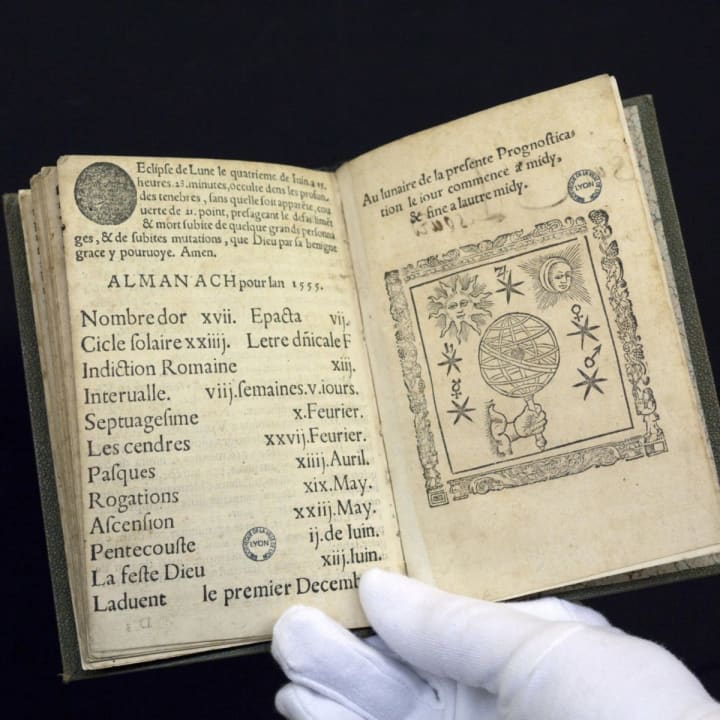 Eclipse de Lune le quatrieme de Iuin, a 15.
heures. 28. minutes, occulte dens les profun
des tenebres, sans quelle soit apparēte, cou
uerte de 21. point, presageant le
& mort subite de quelque grands personna
ges, & de subites mutations, que Dieu par sa benigne
grace y pouruoye. Amen.
ALMANACH pour lan 1555.
Nombre dor xvij. Epacta vij.
Cicle solaire xxiiij. Letre dñicale F
Indiction Romaine xiij.
Interualle. viij.semaines.v.iours.
Septuagesime x.Feurier.
Les cendres xxvij.Feurier.
Pasques xiiij.Auril.
Rogations xix.May.
Ascension xxiij.May.
Pentecouste ij.de Iuin.
La feste Dieu xiij.Iuin.
Laduent le premier Decemb
LYON
Au lunaire de la presente Prognostica-
tion le iour commence a midy,
& fine a lautre midy.
LYON